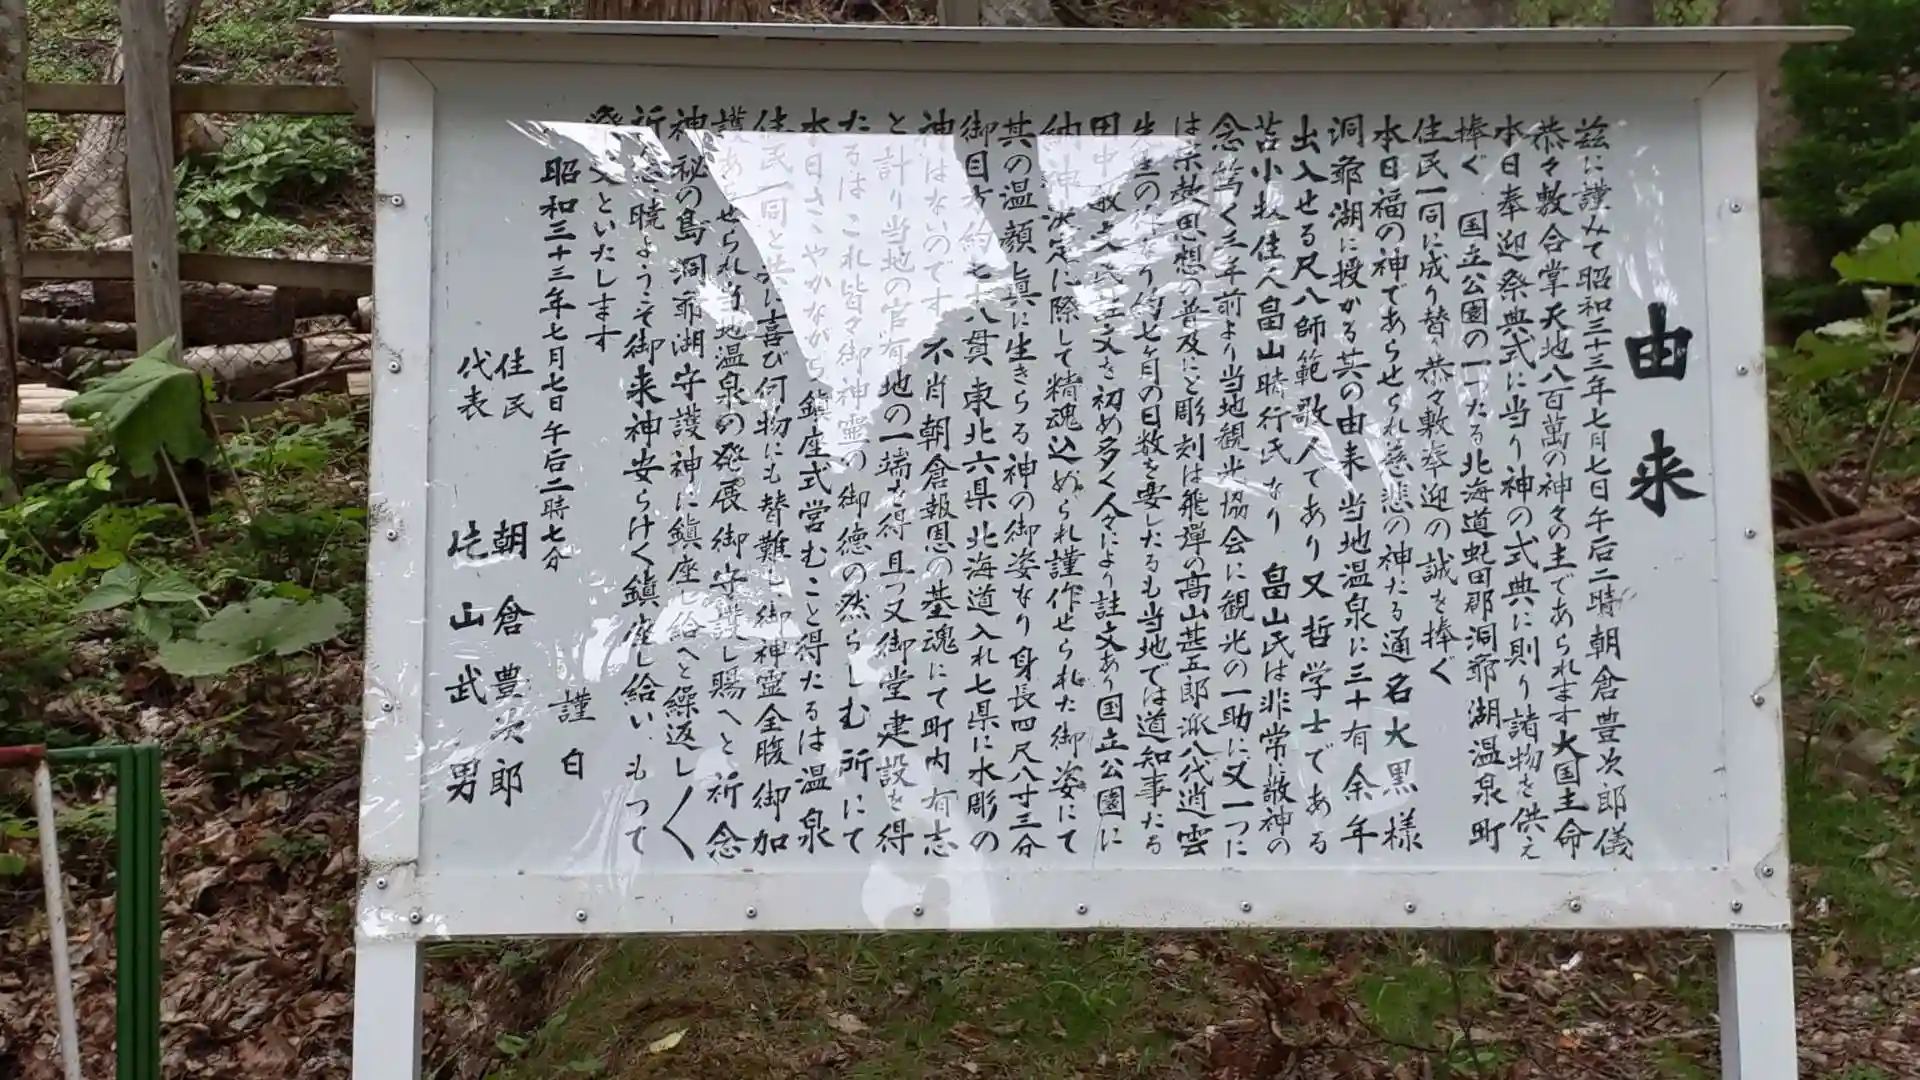 由来
茲に謹みて昭和三十三年七月七日午后二時朝倉豊次郎儀
恭々敷合掌天地八百萬の神々の主であられます大国主命
本日奉迎祭典式に当り神の式典に則り諸物を供え
捧ぐ 国立公園の一たる北海道虻田郡洞爺湖温泉町
住民一同に成り替り恭々敷奉迎の誠を捧ぐ
本日福の神であらせられ慈悲の神たる通名大黒様
洞爺湖に授かる其の由来 当地温泉に三十有余年
出入せる尺八師範歌人であり又哲学士である
苫小牧住人畠山時行氏なり 畠山氏は非常敬神の
念篤く三年前より当地観光協会に観光の一助に又一つに
は宗教思想の普及にと彫刻は飛彈の高山甚五郎派八代逍雲
先生の作なり約七ヶ月の日数を要したるも当地では道知事たる
田中敏文氏註文を初め多く人々により註文あり国立公園に
納神決定に際して精魂込められ謹作せられた御姿にて
其の温顔眞に生きらる神の御姿なり身長四尺八寸三分
御目方約七十八貫 東北六県北海道入れ七県に木彫の
神はないのです 不肖朝倉報恩の基魂にて町内有志
と計り当地の官有地の一端を得且つ又御堂建設を得
たるはこれ皆々御神霊の御徳の然らしむ所にて
本日ささやかながら鎮座式営むこと得たるは温泉
住民一同と共に喜び何物にも替難し御神霊全腹御加
護あらせられ当地温泉の発展御守護し賜へと祈念
神秘の島洞爺湖守護神に鎮座し給へと繰返し〱
祈 暁ようこそ御来神安らけく鎮座し給い、もつて
文といたします
昭和三十三年七月七日午后二時七分
謹白
住民 朝倉豊次郎
代表 山武男